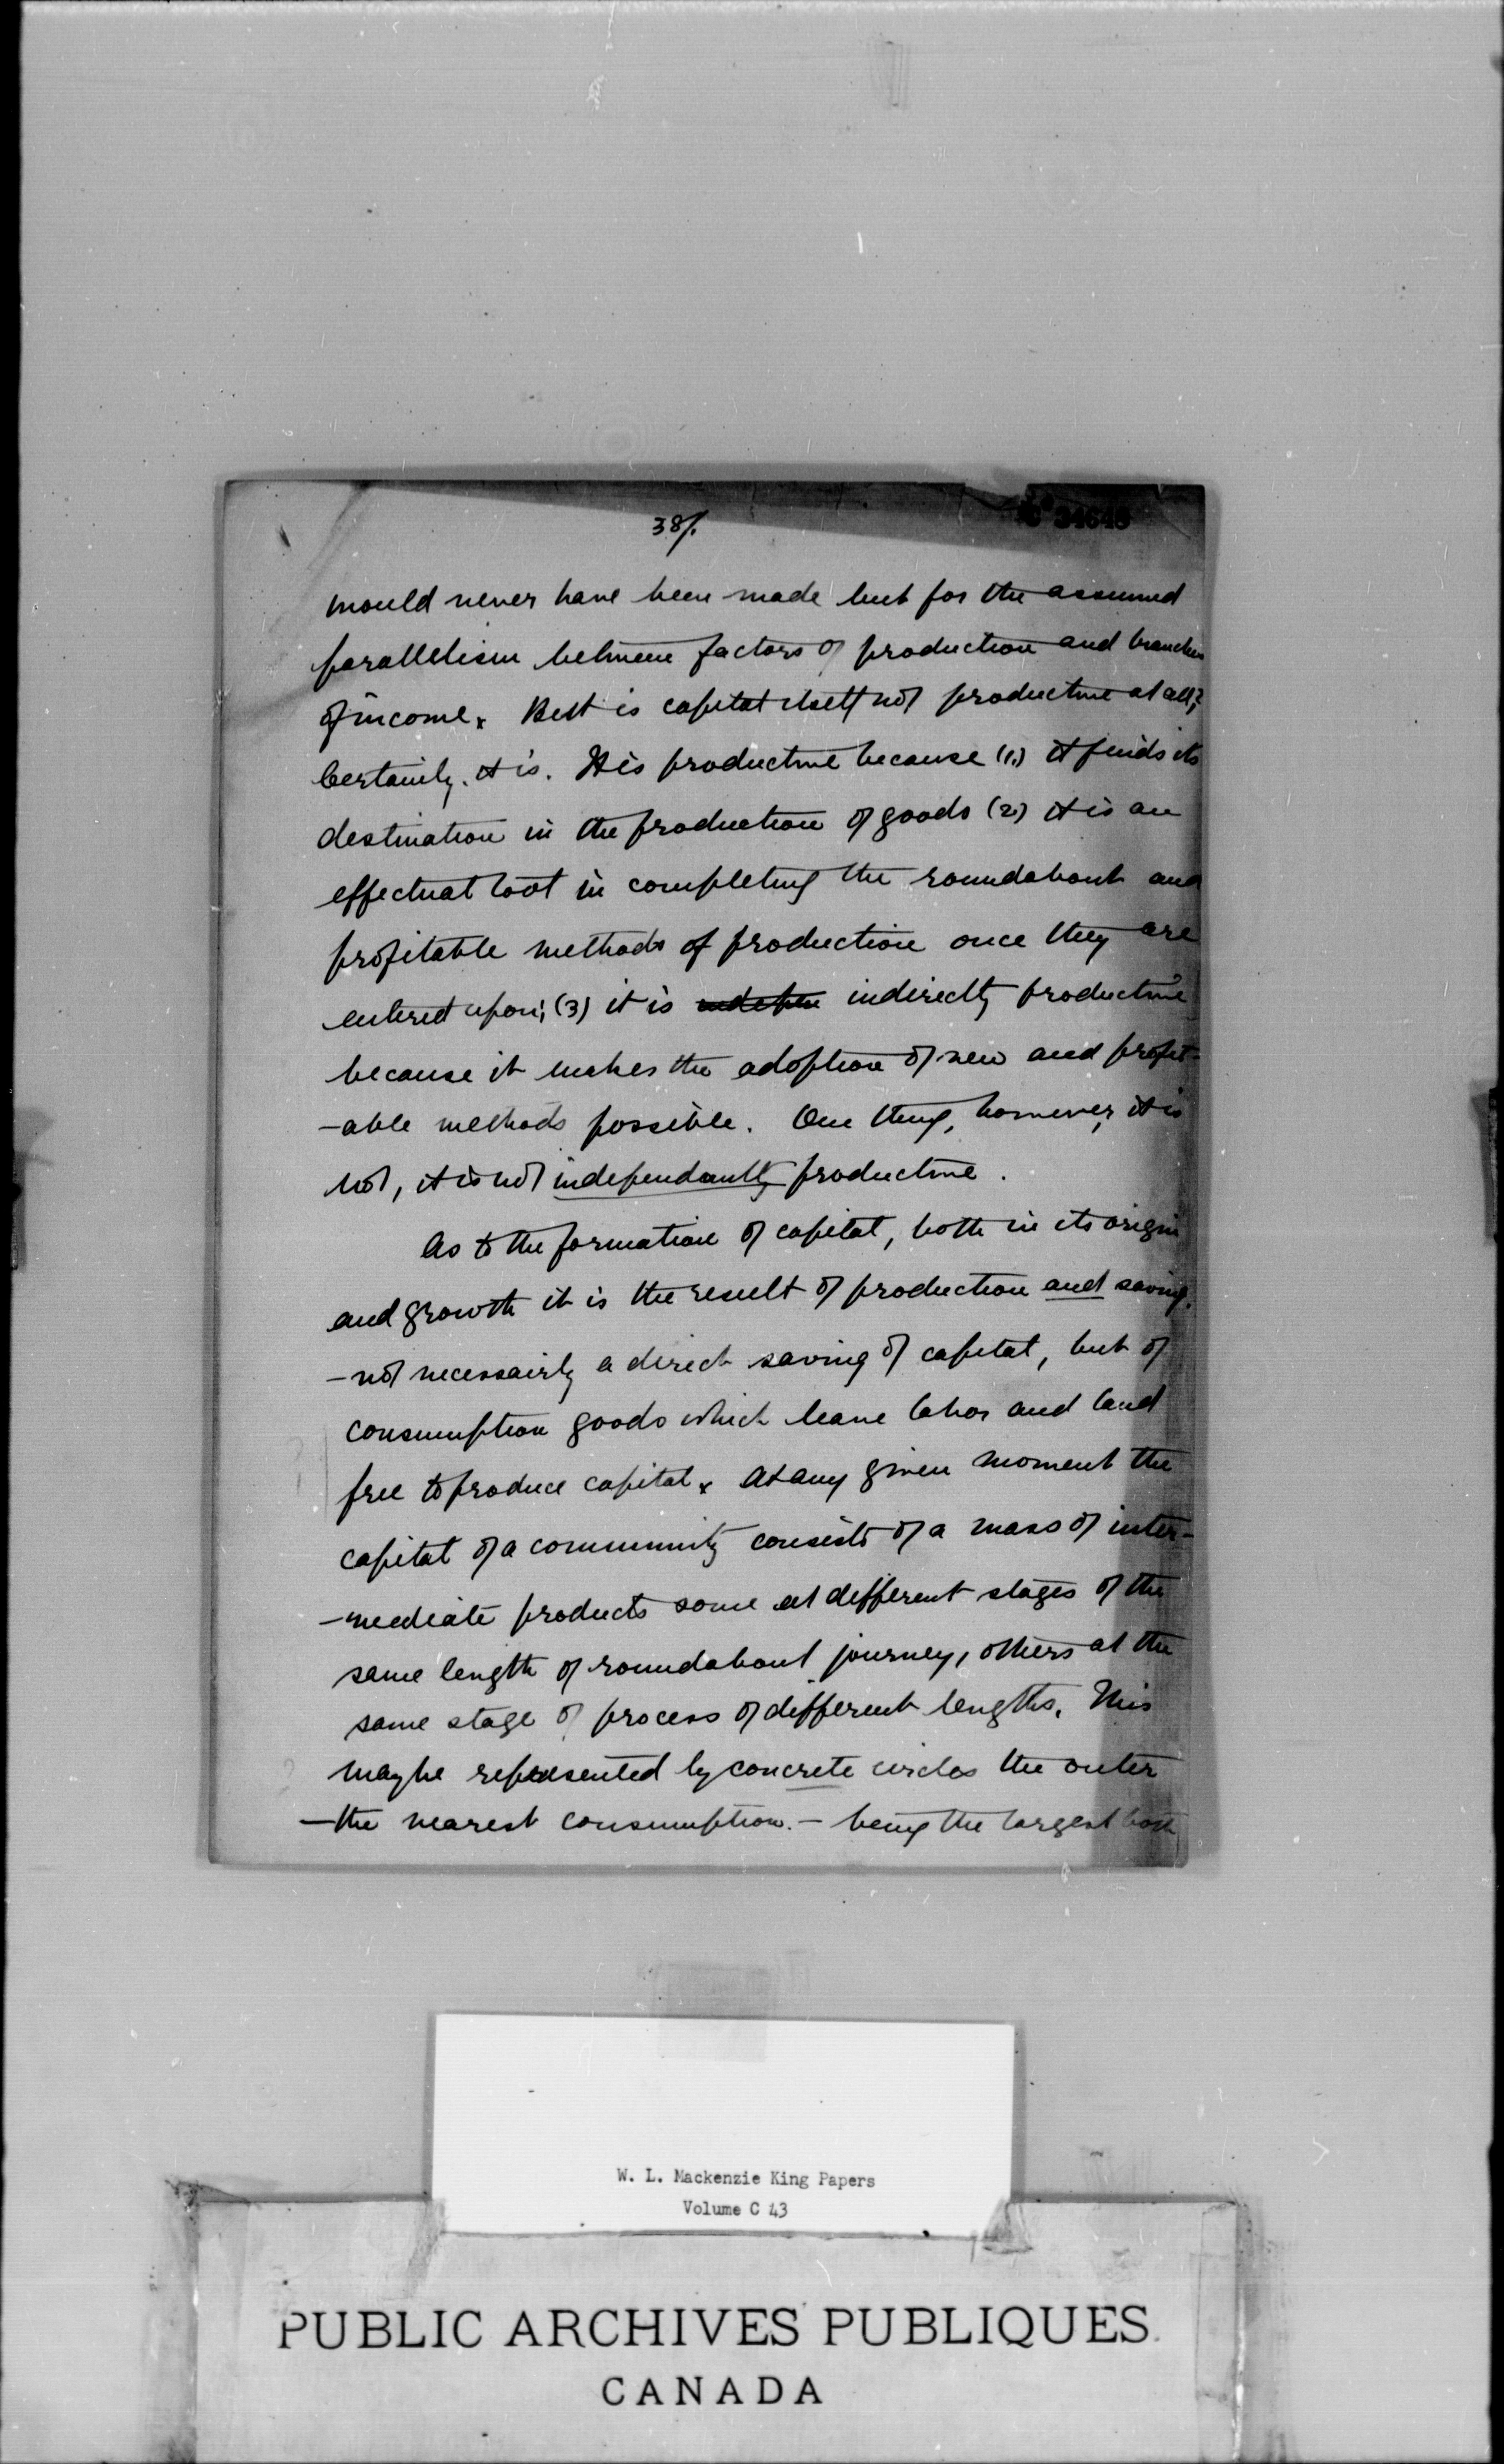 38/.
C 34648
would never have been made but for the assumed
parallelism between factors of production and branches
of income. But is capital itself not productive at all?
Certainly it is. It is productive because (1.) it finds its
destination in the production of goods (2) it is an
effectual tool in completing the roundabout and
profitable methods of production once they are
entered upon; (3) it is indirectly productive
because it makes the adoption of new and profit-
-able methods possible. One thing, however, it is
not, it is not independantly productive.
As to the formation of capital, both in its origin
and growth it is the result of production and saving.
- not necessairly a direct saving of capital, but of
consumption goods which leave labor and land
free to produce capital. At any given moment the
capital of a community consists of a mass of inter-
-mediate products some at different stages of the
same length of roundabout journey, others at the
same stage of process of different lengths. This
may be represented by concrete circles the outer
- the nearest consumption. - being the largest both
W. L. Mackenzie King Papers
Volume C 43
PUBLIC ARCHIVES PUBLIQUES
CANADA